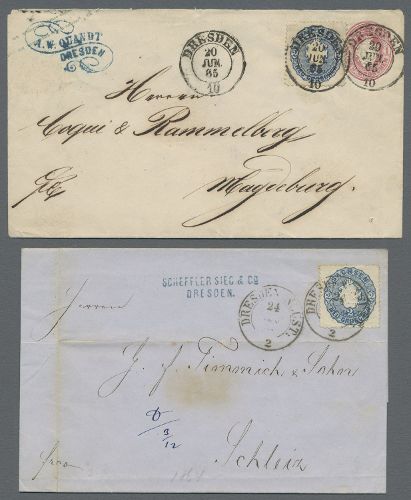 A.W. QUANDT
DRESDEN
DRESDEN
20
JUN.
65
10
DRESDEN
20
JUN.
65
10
DRESDEN
20
JUN.
65
10
Herren
Coqui & Rammelberg
Magdeburg.
SCHEFFLER SIEG & CO
DRESDEN.
DRESDEN
24
2
DRESDEN
2
SACHSEN
Herren
J. f. Timmich & Sohn
9/12
Schleiz
fr๛